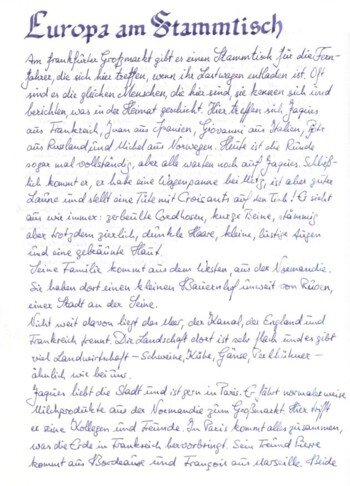 Europa am Stammtisch
Am Frankfurter Großmarkt gibt es einen Stammtisch für die Fern-
fahrer, die sich hier treffen, wenn ihr Lastwagen entladen ist. Oft
sind es die gleichen Menschen, die hier sind, sie kennen sich und
berichten, was in der Heimat geschieht. Hier treffen sich Jaques
aus Frankreich, Juan aus Spanien, Giovanni aus Italien,
aus Russland und Michel aus Norwegen. Heute ist die Runde
sogar mal vollständig, aber alle warten noch auf Jaques. Schließ-
lich kommt er, er habe eine Wagenpanne bei Metz, ist aber guter
Laune und stellt eine Tüte mit Croisants auf den Tisch! Er sieht
aus wie immer: zerbeulte Cordhosen, kurze Beine, stämmig
aber trotzdem zierlich, dunkle Haare, kleine, lustige Augen
und eine gebräunte Haut.
Seine Familie kommt aus dem Westen, aus der Normandie.
Sie haben dort einen kleinen Bauernhof unweit von Rouen,
einer Stadt an der Seine.
Nicht weit davon liegt das Meer, der Kanal, der England und
Frankreich trennt. Die Landschaft dort ist sehr flach und es gibt
viel Landwirtschaft – Schweine, Kühe, Gänse, Perlhühner –
ähnlich wie bei uns.
Jaques liebt die Stadt und ist gern in Paris. Er fährt normalerweise
Milchprodukte aus der Normandie zum Großmarkt. Hier trifft
er seine Kollegen und Freunde. In Paris kommt alles zusammen,
was die Erde in Frankreich hervorbringt. Sein Freund Pierre
kommt aus Bordeaux und François aus Marseille. Beide